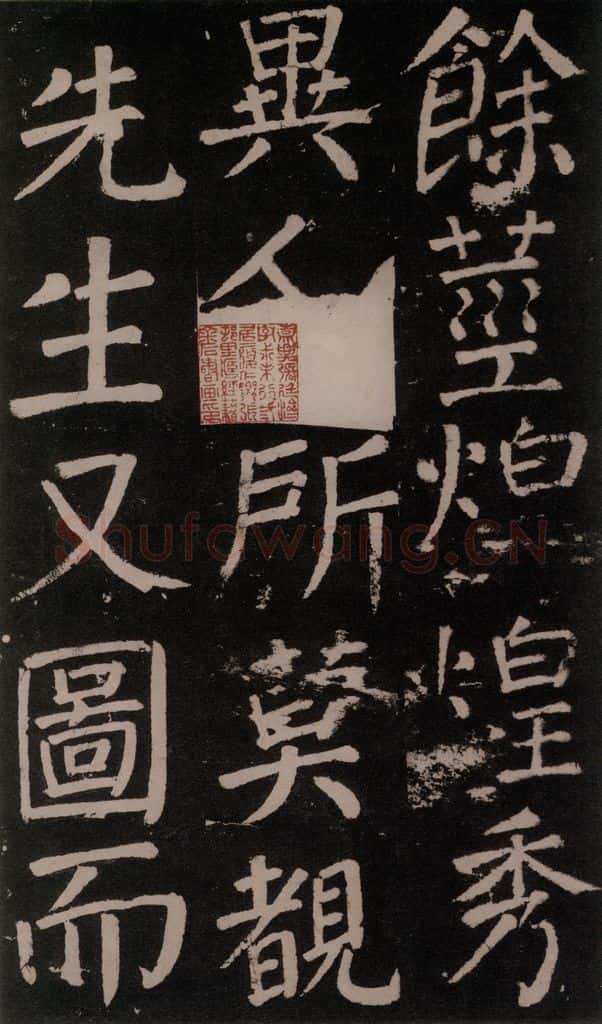 餘莖煌煌秀
異人所莫覩
先生又圖而
Shufawang.CN